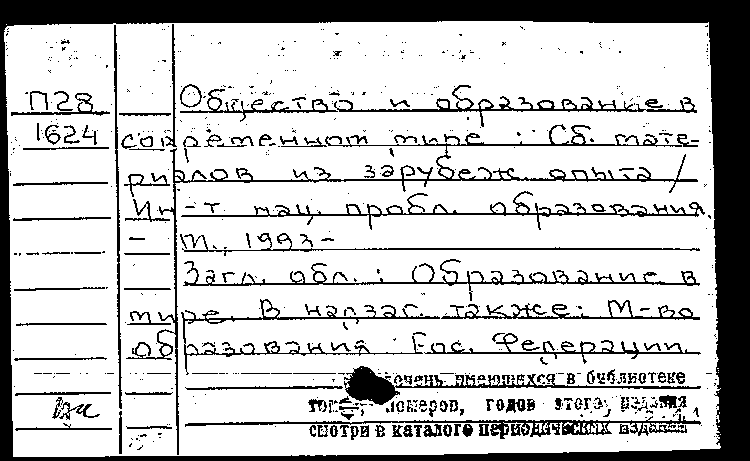 П28
1624
Общество и образование в
современном мире : Сб. мате-
риалов из зарубеж. опыта /
Ин-т нац. пробл. образования.
- М., 1993-
Загл. обл. : Образование в
мире. В надзаг. также: М-во
образования Рос. Федерации.
имеющихся в библиотеке
номеров, годов этого издания
смотри в каталоге периодических изданий